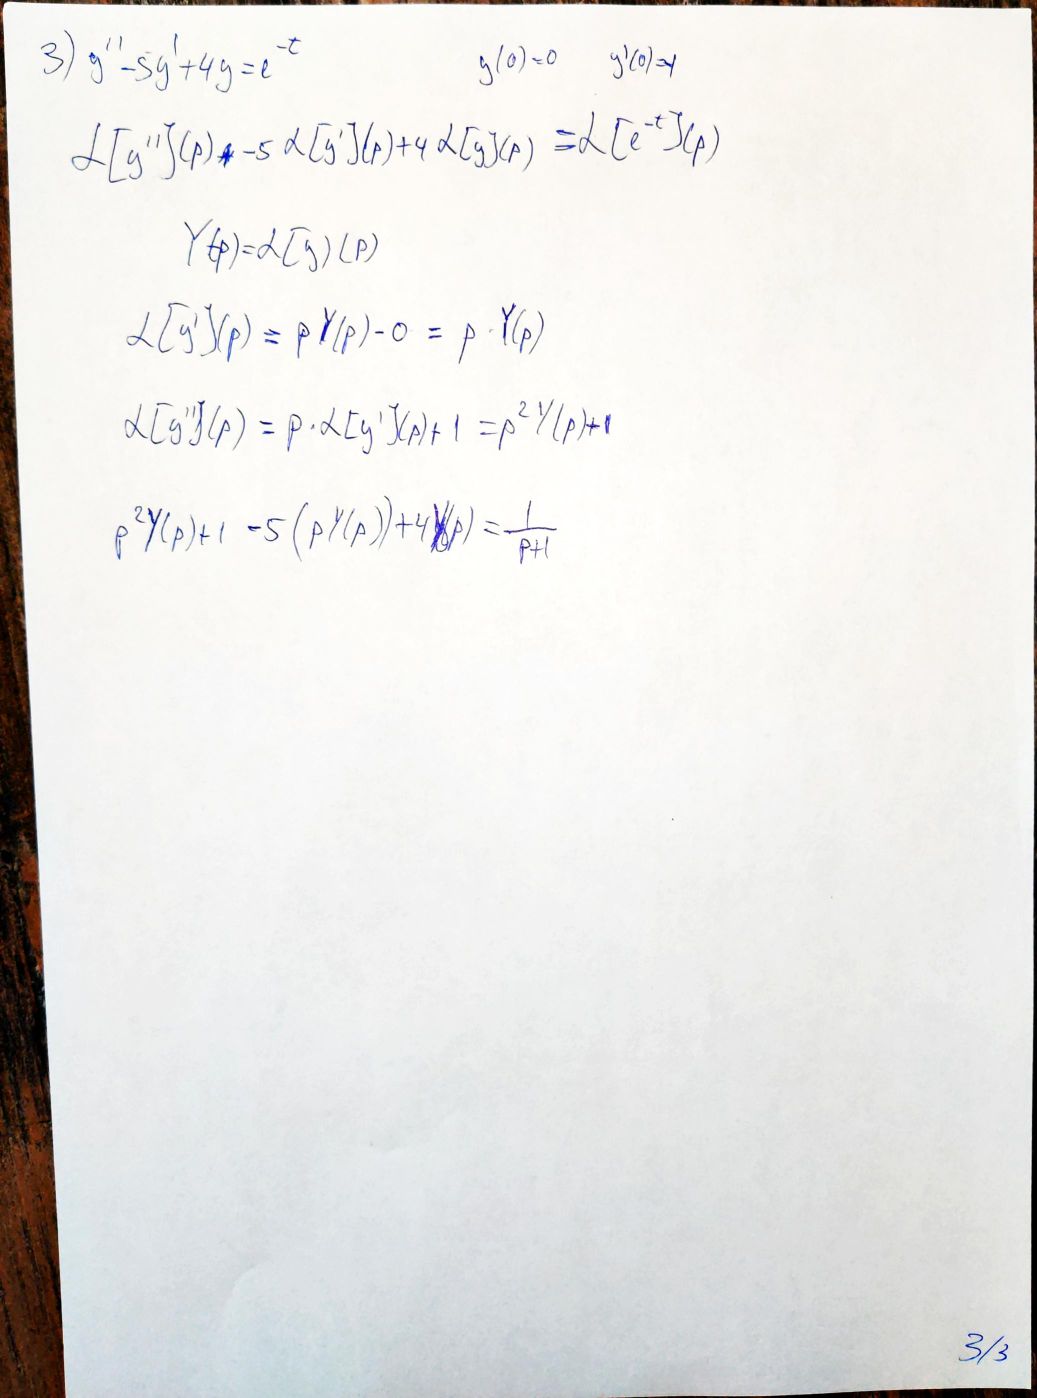 3) y''-5y'+4y=e^{-t} y(0)=0 y'(0)=-1
ℒ[y''](p) -5 ℒ[y'](p)+4 ℒ[y](p) = ℒ[e^{-t}](p)
Y(p)=ℒ[y)(p)
ℒ[y'](p) = pY(p)-0 = p·Y(p)
ℒ[y''](p) = p·ℒ[y'](p)+1 = p²Y(p)+1
p²Y(p)+1 -5(pY(p))+4Y(p) = 1/(p+1)
3/3